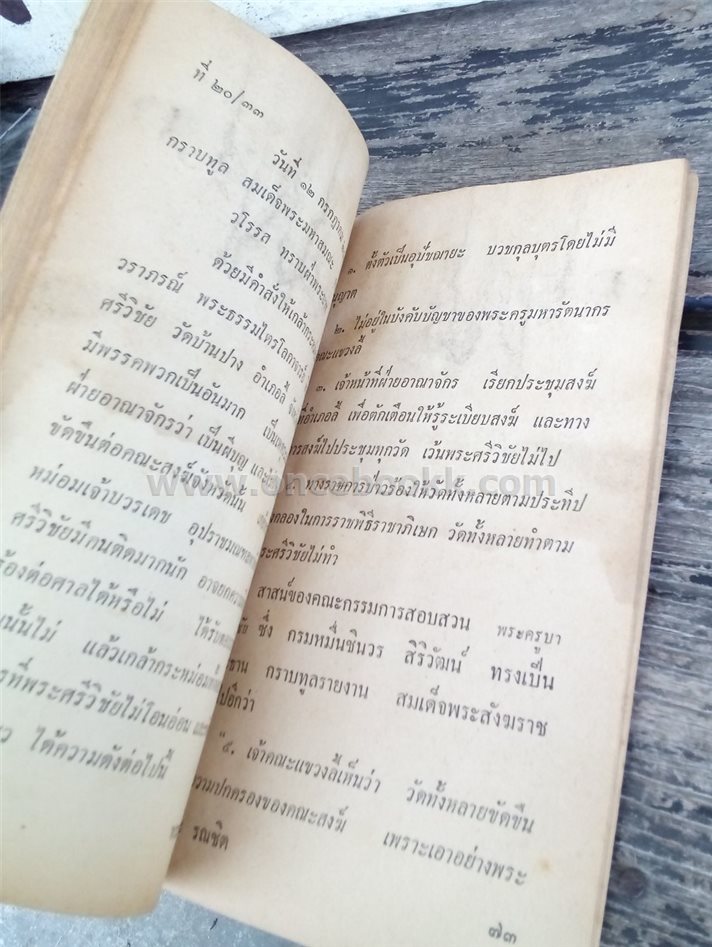 ที่ ๒๐/๓๓
วันที่ ๑๒ กรกฎาคม
กราบทูล สมเด็จพระมหาสมณะ
วโรรส ทราบฝ่าพระ
ด้วยมีคำสั่งให้เกล้ากระ
วราภรณ์ พระธรรมไตรโลกาจารย์
ศรีวิชัย วัดบ้านปาง อำเภอลี้
มีพรรคพวกเป็นอันมาก
ฝ่ายอาณาจักรว่า เป็นผีบุญ และ
ขัดขืนต่อคณะสงฆ์จังหวัดนั้น
หม่อมเจ้าบวรเดช อุปราชมณฑล
ศรีวิชัยมีคนติดมากนัก อาจยกความ
ร้องต่อศาลได้หรือไม่ ได้รับ
นั้นไม่ แล้วเกล้ากระหม่อม
รที่พระศรีวิชัยไม่โอนอ่อน และ
ว ได้ความดังต่อไปนี้
๑. ตั้งตัวเป็นอุปัชฌายะ บวชกุลบุตรโดยไม่มี
ญาต
๒. ไม่อยู่ในบังคับบัญชาของพระครูมหารัตนากร
คณะแขวงลี้
๓. เจ้าหน้าที่ฝ่ายอาณาจักร เรียกประชุมสงฆ์
ที่อำเภอลี้ เพื่อตักเตือนให้รู้ระเบียบสงฆ์ และทาง
การสงฆ์ไปประชุมทุกวัด เว้นพระศรีวิชัยไม่ไป
๔. ทางราชการป่าวร้องให้วัดทั้งหลายตามประทีป
งกลองในการราชพิธีราชาภิเษก วัดทั้งหลายทำตาม
ระศรีวิชัยไม่ทำ
สาสน์ของคณะกรรมการสอบสวน พระครูบา
ชัย ซึ่ง กรมหมื่นชินวร สิริวัฒน์ ทรงเป็น
ธาน กราบทูลรายงาน สมเด็จพระสังฆราช
ปอีกว่า
"๕. เจ้าคณะแขวงลี้เห็นว่า วัดทั้งหลายขัดขืน
ความปกครองของคณะสงฆ์ เพราะเอาอย่างพระ
รณชิต
๗๓